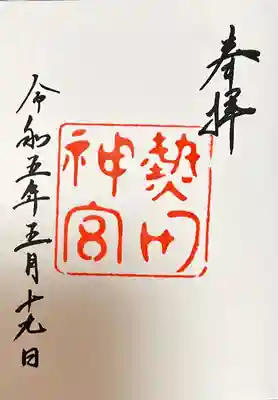 奉拝
熱田
神宮
令和五年五月十九日